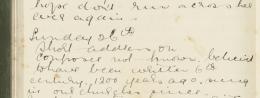 hope don't run across her
ever again.
Sunday 26th
Short address on
composer not known, believed
to have been written 6th
century, 1200 years ago, sung
in our churches since